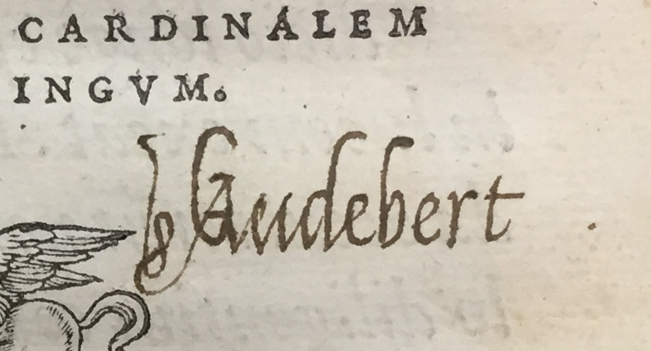 CARDINALEM
INGVM.
Audebert